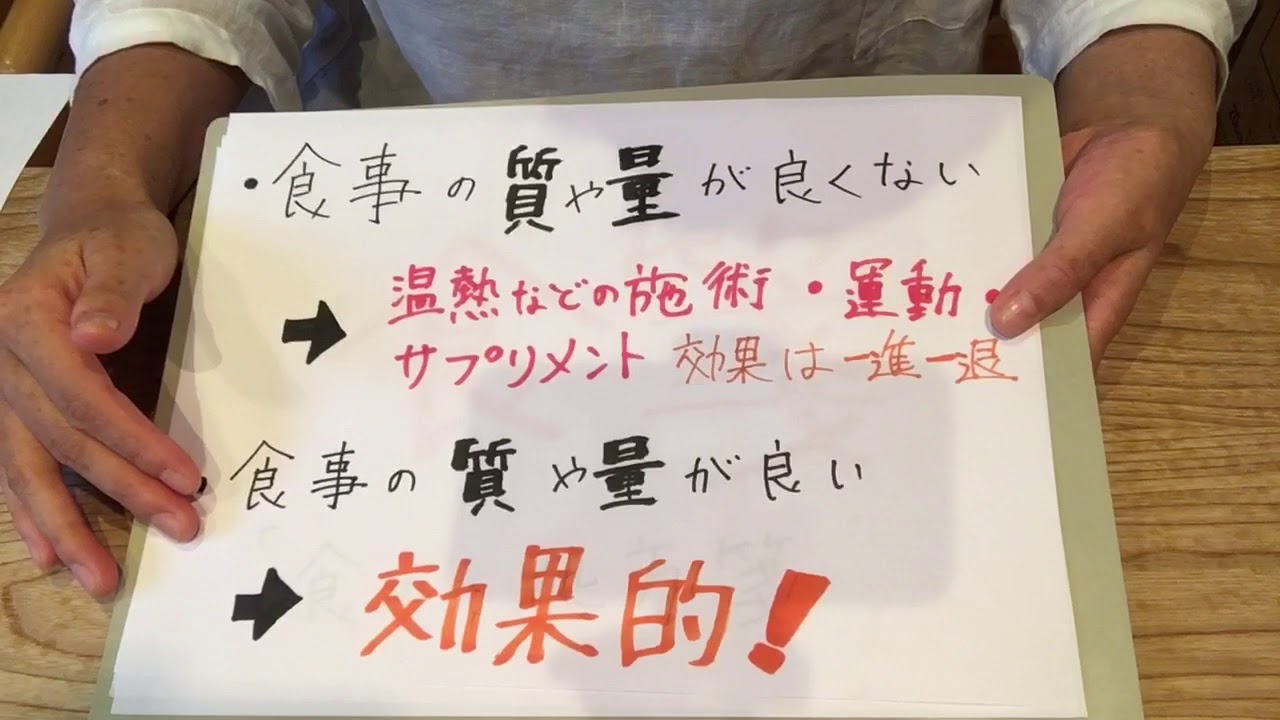 ・食事の質や量が良くない
➡ 温熱などの施術・運動・
サプリメント 効果は一進一退
・食事の質や量が良い
➡ 効果的!